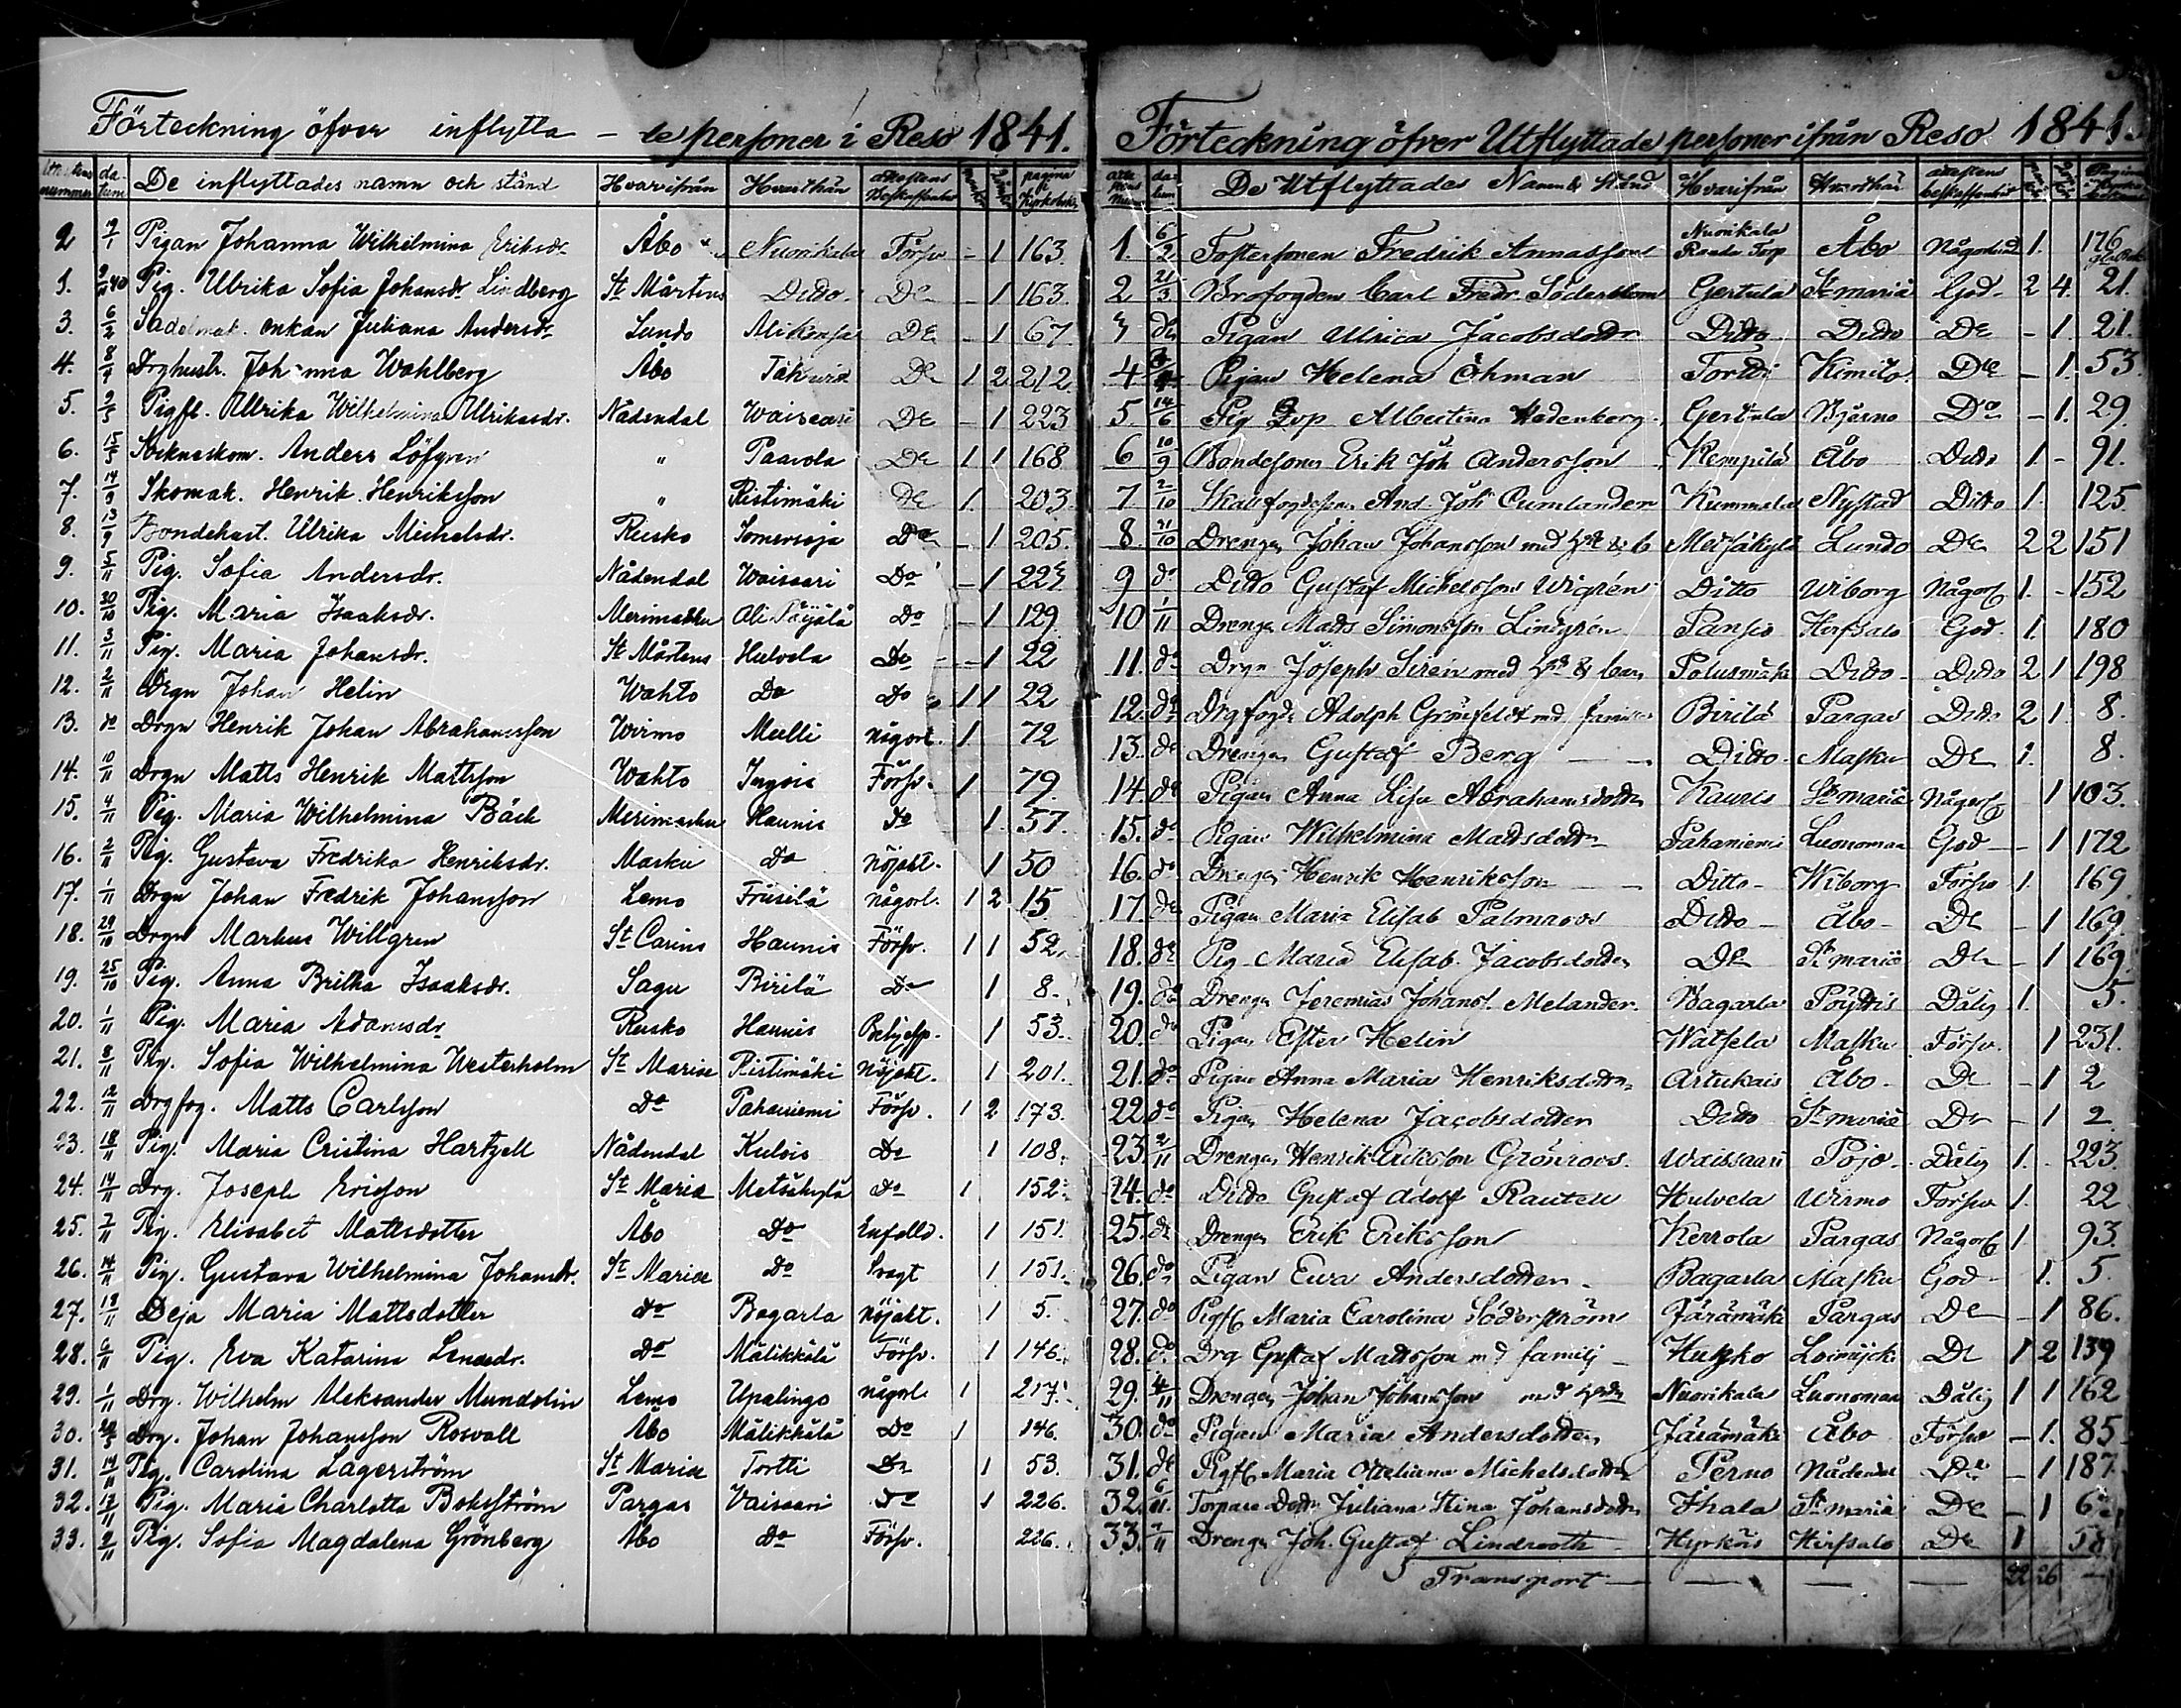 Förteckning öfver inflytta - de personer i Reso 1841.
nummer da-tum De inflyttades namn och stånd Hvarifrån Hvarthän attestens beskaffenhet pagina i Kyrkoboken
2 7/1 Pigan Johanna Wilhelmina Eriksdr. Åbo Nuorikala Försv. - 1 163.
1. 9/11 40 Pig. Ulrika Sofia Johansdr. Lindberg St Mårtens Dido. Do - 1 163.
3. 6/2 Sadelmak. enkan Juliana Andersdr. Lundo Do - 1 67
4. 8/4 Drghustr. Johanna Wahlberg Åbo Do 1 2 212
5. 2/5 Pigfl. Ullrika Wilhelmina Ulrikasdr. Nådendal Waiseari Do - 1 223
6. 15/5 Anders Löfgren " Paavola Do 1 1 168
7. 14/9 Skomak. Henrik Henriksson " Ristimäki Do 1. 203.
8. 13/9 Bondehust. Ulrika Michelsdr. Rusko Somersoja Do - 1 205.
9. 5/11 Pig. Sofia Andersdr. Nådendal Waisaari Do - 1 223
10. 30/10 Pig. Maria Isaaksdr. Merimasku Ali Pöyälä Do - 1 129
11. 3/11 Pig. Maria Johansdr. St Mårtens Hulvela Do - 1 22
12. 2/11 Drgn Johan Helin Wahto Do Do 1 1 22
13. do Drgn Henrik Johan Abrahamsson Wirmo Mulli någorl. 1 72
14. 10/11 Drgn Matts Henrik Mattsson Wahto Ingois Försv. 1 79.
15. 4/11 Pig. Maria Wilhelmina Bäck Merimasku Haunis do 1. 57.
16. 2/11 Pig. Gustava Fredrika Henriksdr. Masku do nöjakt. 1 50
17. 1/11 Drgn Johan Fredrik Johansson Lemo Friisilä någorl. 1 2 15
18. 29/10 Drgn Markus Willgren St Carins Haunis Försv. 1 1 52.
19. 25/10 Pig. Anna Britka Isaaksdr. Sagu Piriilä Do 1 8.
20. 1/11 Pig. Maria Adamsdr Rusko Haunis 1 53.
21. 8/11 Pig. Sofia Wilhelmina Westerholm St Mariæ Ristimäki nöjakt. 1 201.
22. 12/11 Drgfog. Matts Carlsson do Pahaniemi Försv. 1 2 173.
23. 18/11 Pig. Maria Cristina Hartzell Nådendal Kulois Do 1 108.
24. 14/11 Drg. Joseph Ericson St Maria Metsäkylä do 1 152.
25. 7/11 Pig. Elisabet Mattsdotter Åbo Do Enfalld. 1 151.
26. 14/11 Pig. Gustava Wilhelmina Johansdr. St Mariæ Do Svagt 1 151.
27. 18/11 Deja Maria Mattsdotter do Bagarla nöjakt. 1 5.
28. 6/11 Pig. Eva Katarina Lenasdr. Do Mälikkälä Försv. 1 146.
29. 1/11 Drg. Wilhelm Aleksander Mundelin Lemo Upalingo någorl. 1 217.
30. Drg. Johan Johansson Rosvall Åbo Mälikkälä Do 1 146.
31. 14/11 Pig. Carolina Lagerström St Mariæ Tortti Do 1 53.
32. 17/11 Pig. Maria Charlotta Boksström Pargas Vaisaari do 1 226.
33. 9/11 Pig. Sofia Magdalena Grönberg Åbo do Försv. 226.
Förteckning öfver Utflyttade personer ifrån Reso 1841.
De Utflyttades Namn & Stånd Hvarifrån Hvarthän attestens beskaffenhet
1. 6/2 Fostersonen Fredrik Annasson Nuorikala Randa Torp Åbo Någorlund 1. 176
2 21/3 Brofogden Carl Fredr. Söderblom Gertula St mariä God 2 4. 21.
3 do Pigan Ullrica Jacobsdotter Ditto Ditto Do - 1. 21.
4 Pigan Helena Öhman Torttti Kimito Do - 1. 53.
5. 14/6 Pig Sop Albertina Hedenberg Gertula Bjerno Do - 1. 29.
6 10/9 Bondesonen Erik Joh Andersson Kempilä Åbo Dido 1. - 91.
7 2/10 And Joh Cumlander Kummala Nystad Ditto 1. 125.
8. 31/10 Drengen Johan Johansson med Metsäkylä Lundo Do 2 2 151
9 do Dido Gustaf Michelsson Wigrén Ditto Wiborg Någorl 1. - 152
10 1/11 Drengen Matts Simonsson Lindgrén Pansio Hirfsalo God. 1 180
11. do Drgn Josephs Sirén med & barn Polusmäki Dido Dido 2 1 198
12. do Drgfogde Adolph Grönfeldt md familie Birilä Pargas Dido 2 1 8.
13. do Drengen Gustaf Berg - Ditto Masku Do 1. 8.
14. do Pigan Anna Lisa Abrahamsdotter Kauris St mariä Någorl 1 103.
15. do Pigan Wilhelmina Mattsdotter Pahaniemi Luonomaa God - 1 172
16. do Drengen Henrik Henriksson Ditto Wiborg Försv 1. 169.
17. do Pigan Maria Elisab Palmroos Ditto Åbo Do - 1 169
18. do Pig Maria Elisab. Jacobsdotter Do St mariä Do - 1 169.
19. do Drengen Jeremias Johanss. Melander. Bagarla Pöyttis Dålig 1. 5.
20. do Pigan Ester Helin Watsela Masku Försv. 1 231.
21. do Pigan Anna Maria Henriksdotter Artukais Åbo Do - 1 2
22. do Pigan Helena Jacobsdotter Dido St mariä Do - 1 2
23. 2/11 Drengen Henrik Eriksson Grönroos. Waissaari Pojo Dålig 1. 223.
24. do Dido Gustaf Adolf Rautell Hulvela Wirmo Försv 1. 22
25. do Drengen Erik Eriksson Kerrola Pargas Någorl 1 93.
26. do Pigan Eva Andersdotter Bagarla Masku God 1. 5.
27. do Pigfl Maria Carolina Söderström Järämäki Pargas Do - 1 86.
28. do Drg Gustaf Mattsson md familj Huhko Loimijoki Do 1 2 139
29. 4/11 Drengen Johan Johansson md Nuorikala Luonomaa Dålig 1 1 162
30. do Pigan Maria Andersdotter Järämäki Åbo Försv - 1. 85
31. do Pigfl Maria Ottiliana Michelsdotter Perno Nådendal Do - 1 187.
32. 6/11 Torpare Dottr Juliana Stina Johansdotter Ihala St mariä Do - 1 6
33. 7/11 Drengn Joh. Gustaf Lindrooth Hyrköis Hirfsalo Do 1 58
Transport 22 26